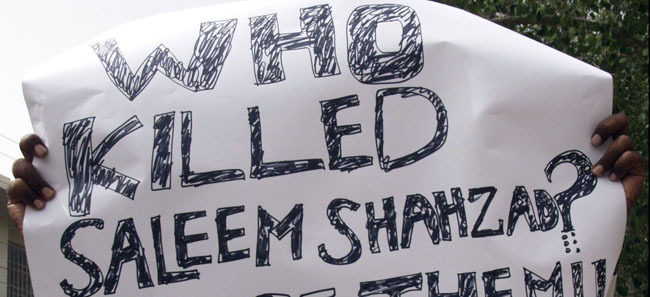 WHO
KILLED
SALEEM SHAHZAD?
THEM!!